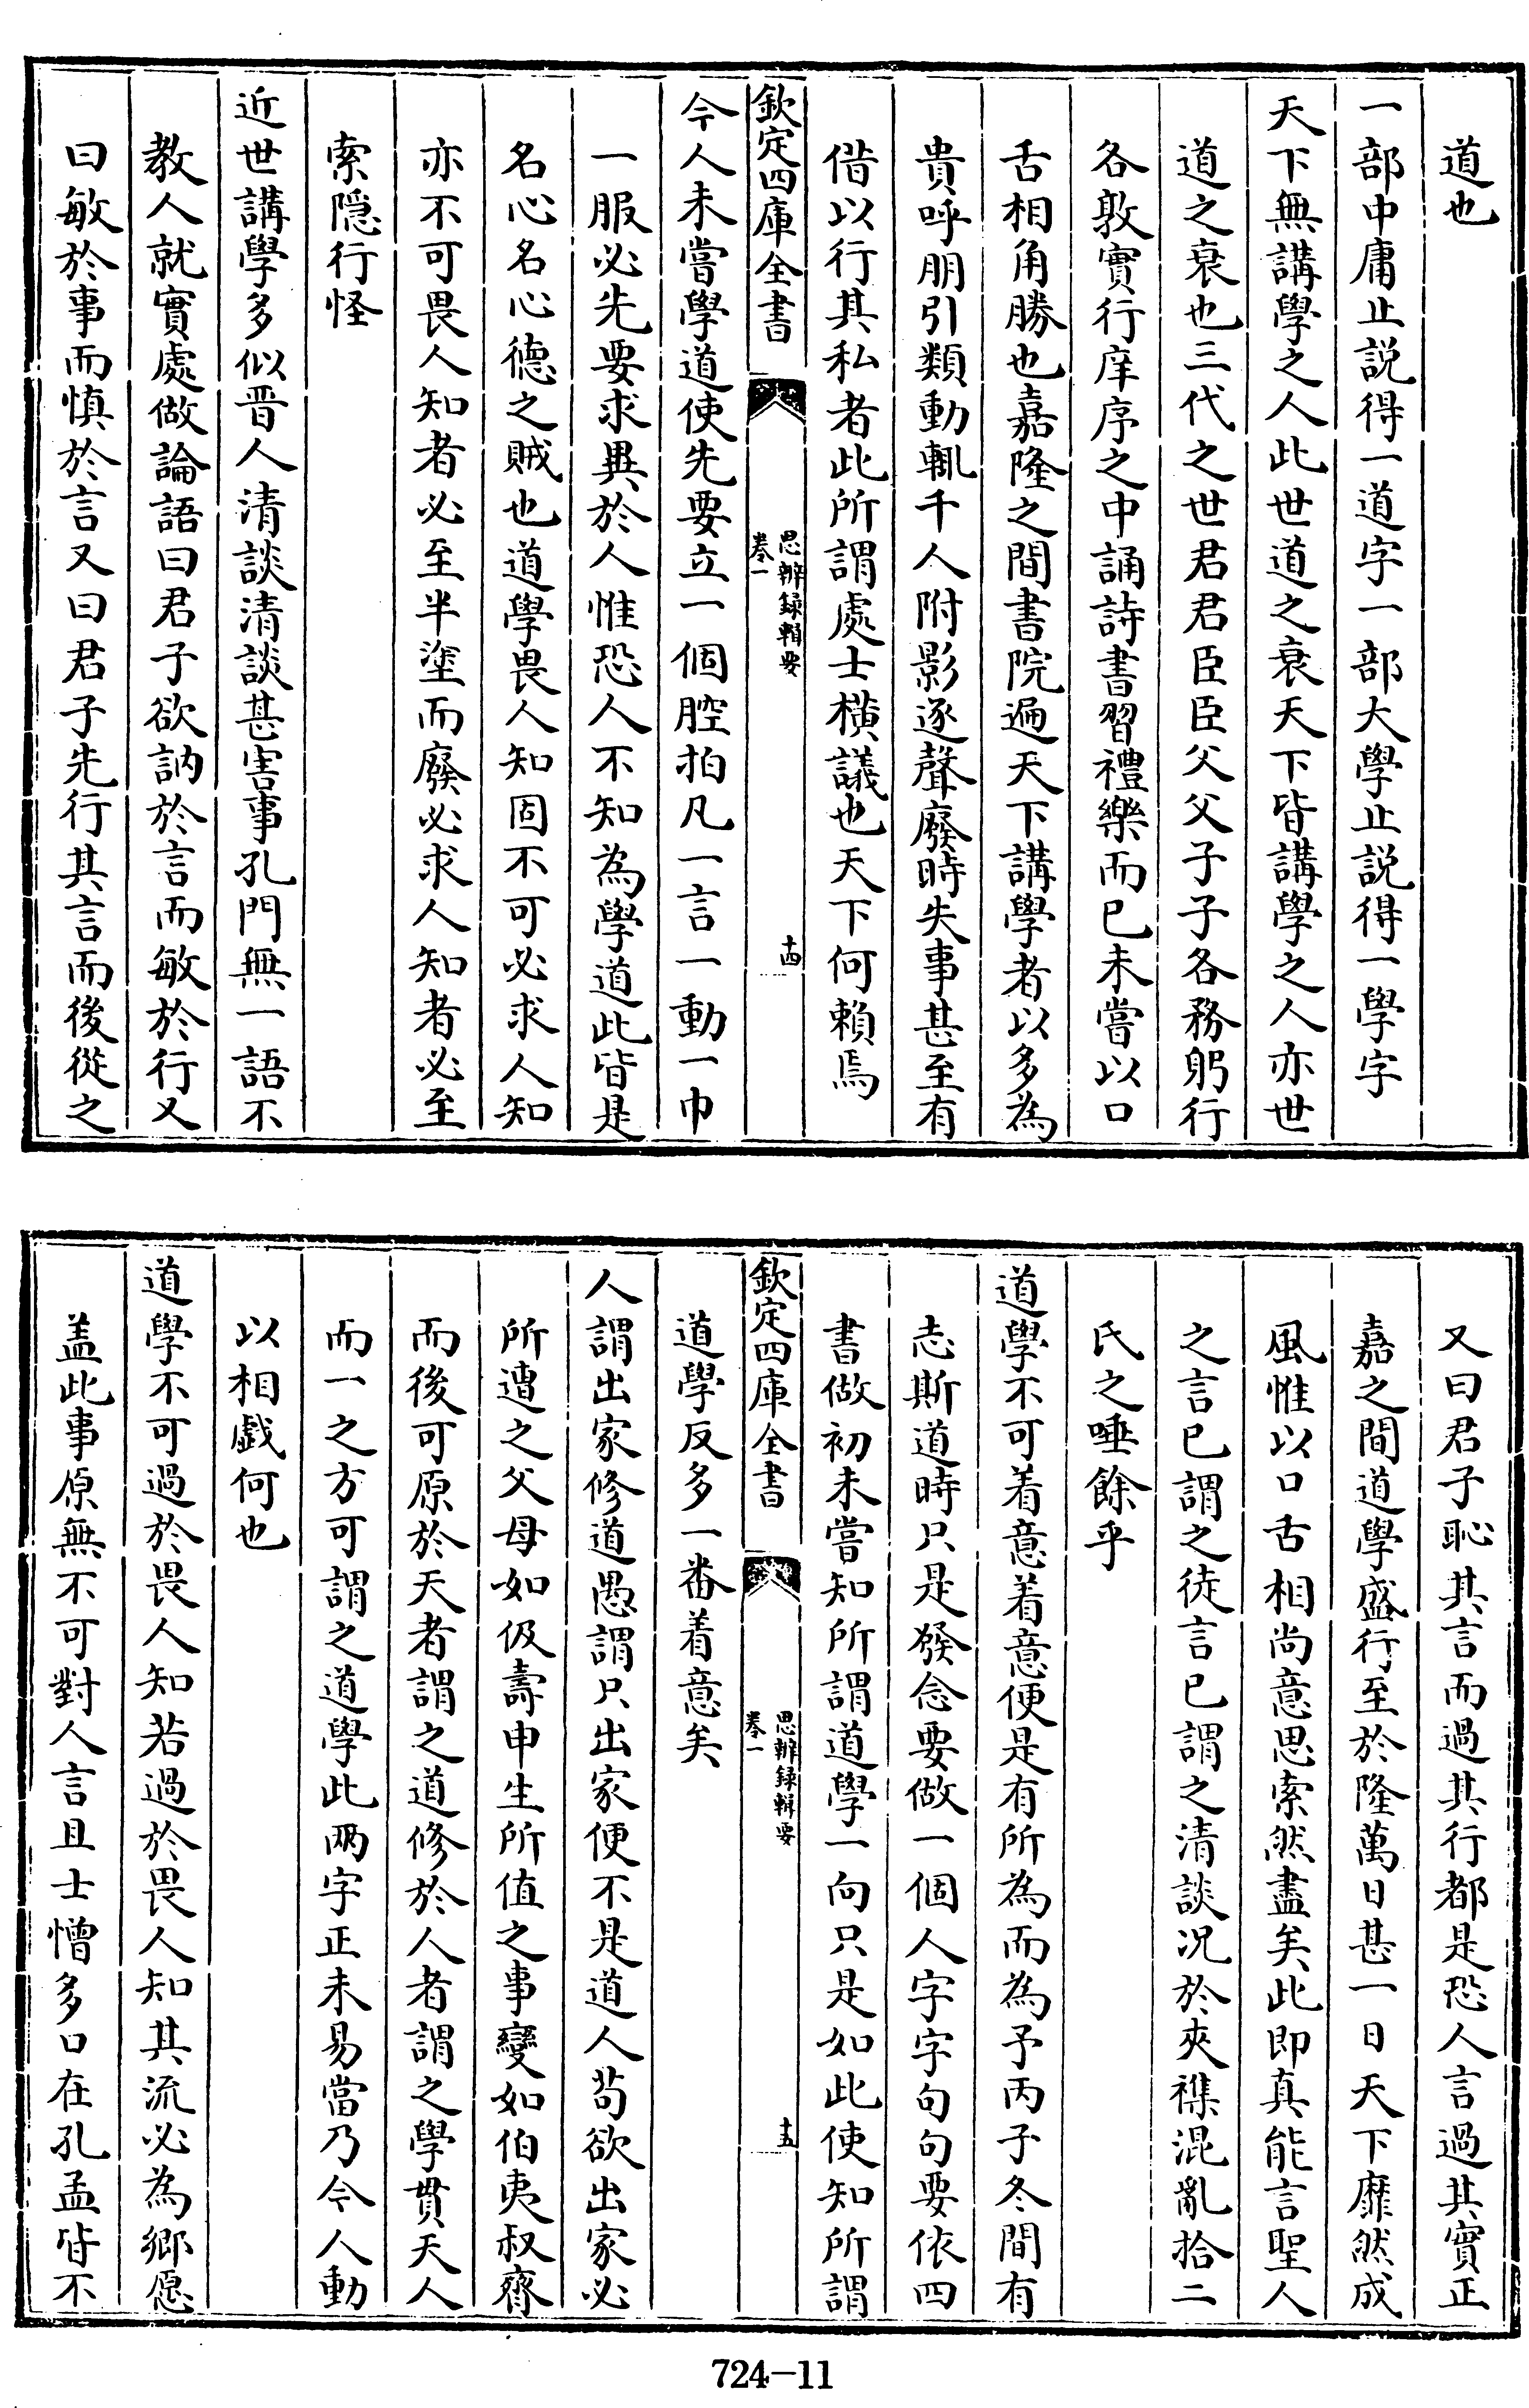 道也
一部中庸止説得一道字一部大學止説得一學字
天下無講學之人此世道之衰天下皆講學之人亦世
道之衰也三代之世君君臣臣父父子子各務躬行
各敦實行庠序之中誦詩書習禮樂而已未嘗以口
舌相角勝也嘉隆之間書院遍天下講學者以多為
貴呼朋引類動輒千人附影逐聲廢時失事甚至有
借以行其私者此所謂處士橫議也天下何賴焉
欽定四庫全書
思辨録輯要
卷一
十四
今人未嘗學道使先要立一個腔拍凡一言一動一巾
一服必先要求異於人惟恐人不知為學道此皆是
名心名心德之賊也道學畏人知固不可必求人知
亦不可畏人知者必至半塗而廢必求人知者必至
索隱行怪
近世講學多似晋人清談清談甚害事孔門無一語不
教人就實處做論語曰君子欲訥於言而敏於行又
曰敏於事而慎於言又曰君子先行其言而後從之
又曰君子恥其言而過其行都是恐人言過其實正
嘉之間道學盛行至於隆萬日甚一日天下靡然成
風惟以口舌相尚意思索然盡矣此即真能言聖人
之言已謂之徒言已謂之清談况於夾襍混亂拾二
氏之唾餘乎
道學不可着意着意便是有所為而為予丙子冬間有
志斯道時只是發念要做一個人字字句句要依四
書做初未嘗知所謂道學一向只是如此使知所謂
欽定四庫全書
思辨録輯要
卷一
十五
道學反多一番着意矣
人謂出家修道愚謂只出家便不是道人苟欲出家必
所遭之父母如伋壽申生所值之事變如伯夷叔齊
而後可原於天者謂之道修於人者謂之學貫天人
而一之方可謂之道學此兩字正未易當乃今人動
以相戯何也
道學不可過於畏人知若過於畏人知其流必為鄉愿
盖此事原無不可對人言且士憎多口在孔孟皆不
724-11